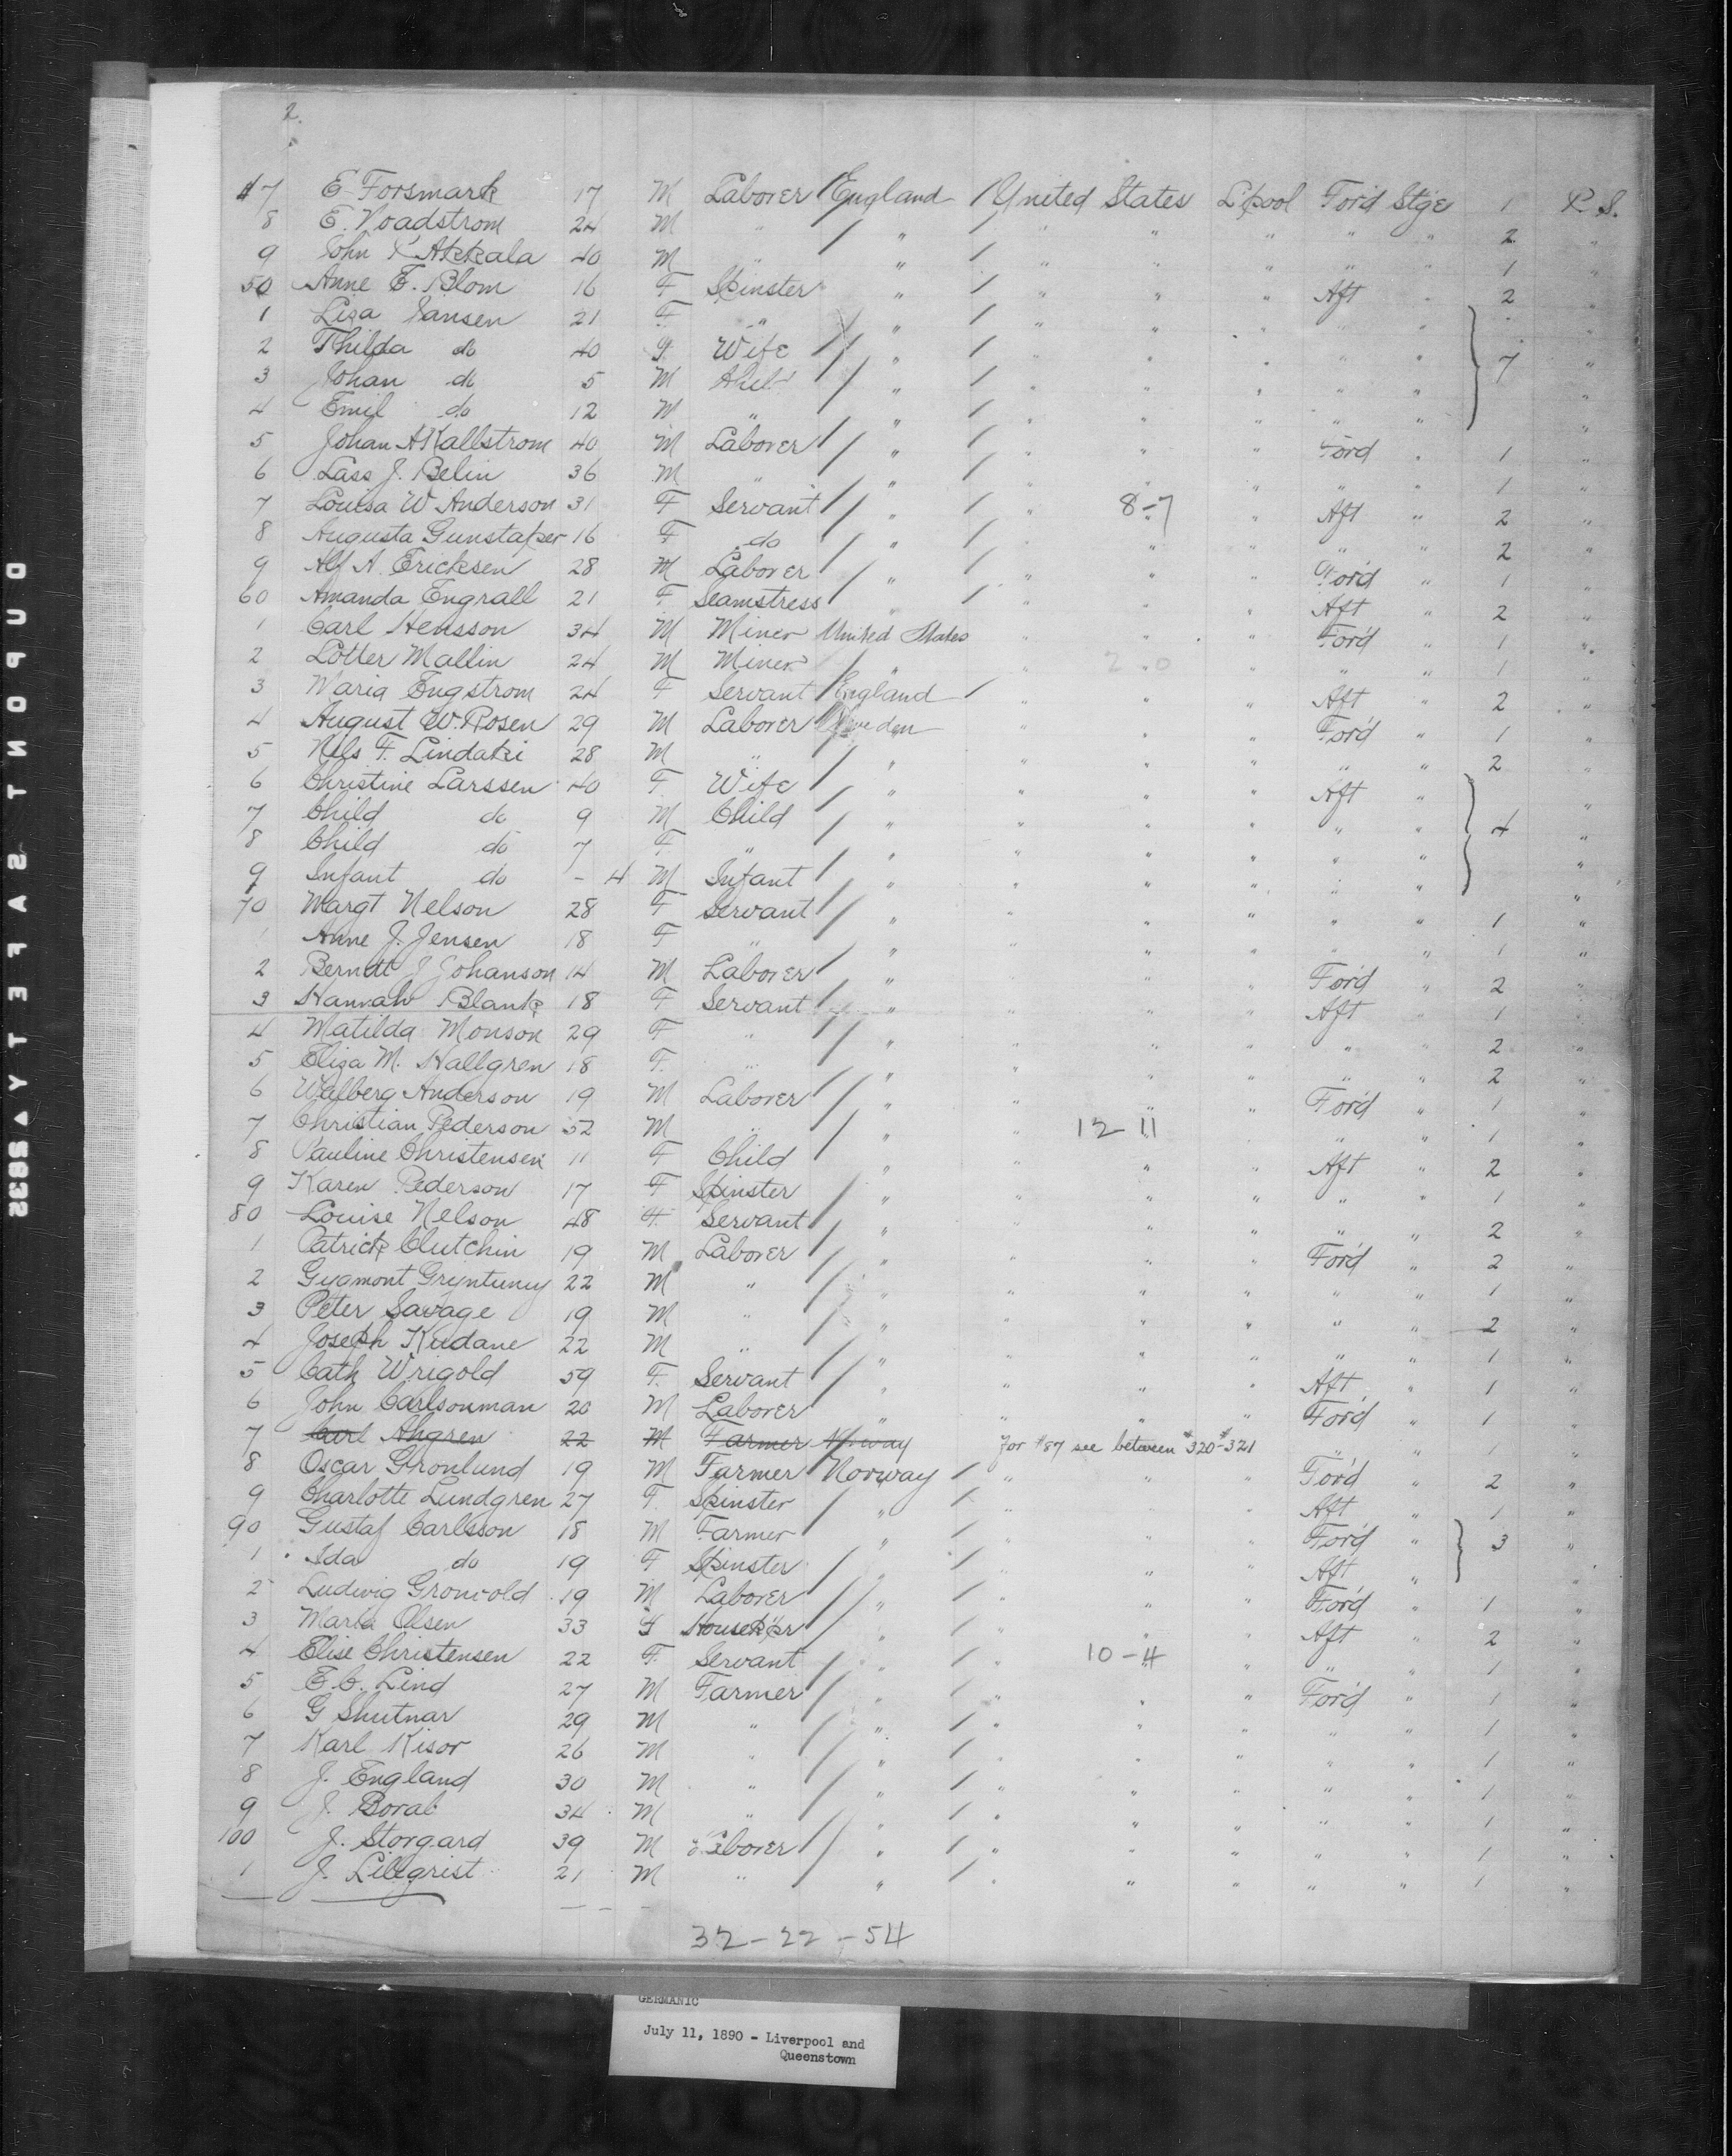 2.
47 E Forsmark 17 M Laborer England United States L'pool For'd Stge 1 P. S.
8 E. Noadstrom 24 M " " " " " " " 2 "
9 John K Akkala 40 M " " " " " " " 1 "
50 Anne E. Blom 16 F Spinster " " " " Aft " 2 "
1 Liza Jansen 21 F " " " " " " " "
2 Thilda do 40 F Wife " " " " " " 7 "
3 Johan do 5 M Child " " " " " " "
4 Emil do 12 M " " " " " " " "
5 Johan A Kallstrom 40 M Laborer " " " " For'd " 1 "
6 Lass J. Belin 36 M " " " " " " " 1 "
7 Louisa W Anderson 31 F Servant " " 8-7 " Aft " 2 "
8 Augusta Gunstaper 16 F do " " " " " " 2 "
9 Alf A. Ericksen 28 M Laborer " " " " For'd " 1 "
60 Amanda Engrall 21 F Seamstress " " " " Aft " 2 "
1 Carl Hensson 34 M Miner United States " " " For'd " 1 "
2 Lotter Mallin 24 M Miner " " 2 0 " " " 1 "
3 Maria Engstrom 24 F Servant England " " " Aft " 2 "
4 August W. Rosen 29 M Laborer Sweden " " " For'd " 1 "
5 Nils F. Lindaki 28 M " " " " " " " 2 "
6 Christine Larssen 40 F Wife " " " " Aft " "
7 Child do 9 M Child " " " " " " 4 "
8 Child do 7 F " " " " " " " "
9 Infant do - 4 M Infant " " " " " " "
70 Margt Nelson 28 F Servant " " " " " " 1 "
1 Anne J. Jensen 18 F " " " " " " " 1 "
2 Berndt J Johanson 14 M Laborer " " " " For'd " 2 "
3 Hannah Blank 18 F Servant " " " " Aft " 1 "
4 Matilda Monson 29 F " " " " " " " 2 "
5 Eliza M. Hallgren 18 F " " " " " " " 2 "
6 Walberg Anderson 19 M Laborer " " " " For'd " 1 "
7 Christian Pederson 52 M " " " 12-11 " " " 1 "
8 Pauline Christensen 11 F Child " " " " Aft " 2 "
9 Karen Pederson 17 F Spinster " " " " " " 1 "
80 Louise Nelson 48 F Servant " " " " " " 2 "
1 Patrick Clutchin 19 M Laborer " " " " For'd " 2 "
2 Gygmont Gryntuny 22 M " " " " " " " 1 "
3 Peter Savage 19 M " " " " " " " 2 "
4 Joseph Kudane 22 M " " " " " " " 1 "
5 Cath Wrigold 59 F Servant " " " " Aft " 1 "
6 John Carlsonman 20 M Laborer " " " " For'd " 1 "
7 Carl Ahgren 22 M Farmer Norway For #87 see between #320-#321 " " 1 "
8 Oscar Gronlund 19 M Farmer Norway " " " For'd " 2 "
9 Charlotte Lundgren 27 F Spinster " " " " Aft " 1 "
90 Gustaf Carlsson 18 M Farmer " " " " For'd " 3 "
1 Ida do 19 F Spinster " " " " Aft " "
2 Ludwig Gronvold 19 M Laborer " " " " For'd " 1 "
3 Maria Olsen 33 F Housek'pr " " " " Aft " 2 "
4 Elise Christensen 22 F Servant " " 10-4 " " " 1 "
5 E. C. Lind 27 M Farmer " " " " For'd " 1 "
6 G Shutnar 29 M " " " " " " " 1 "
7 Karl Kisor 26 M " " " " " " " 1 "
8 J. England 30 M " " " " " " " 1 "
9 J. Borab 34 M " " " " " " " 1 "
100 J. Storgard 39 M Laborer " " " " " " 1 "
1 J. Lilegrist 21 M " " " " " " " 1 "
32-22-54
GERMANIC
July 11, 1890 - Liverpool and
Queenstown
DUPONT SAFETY 3832